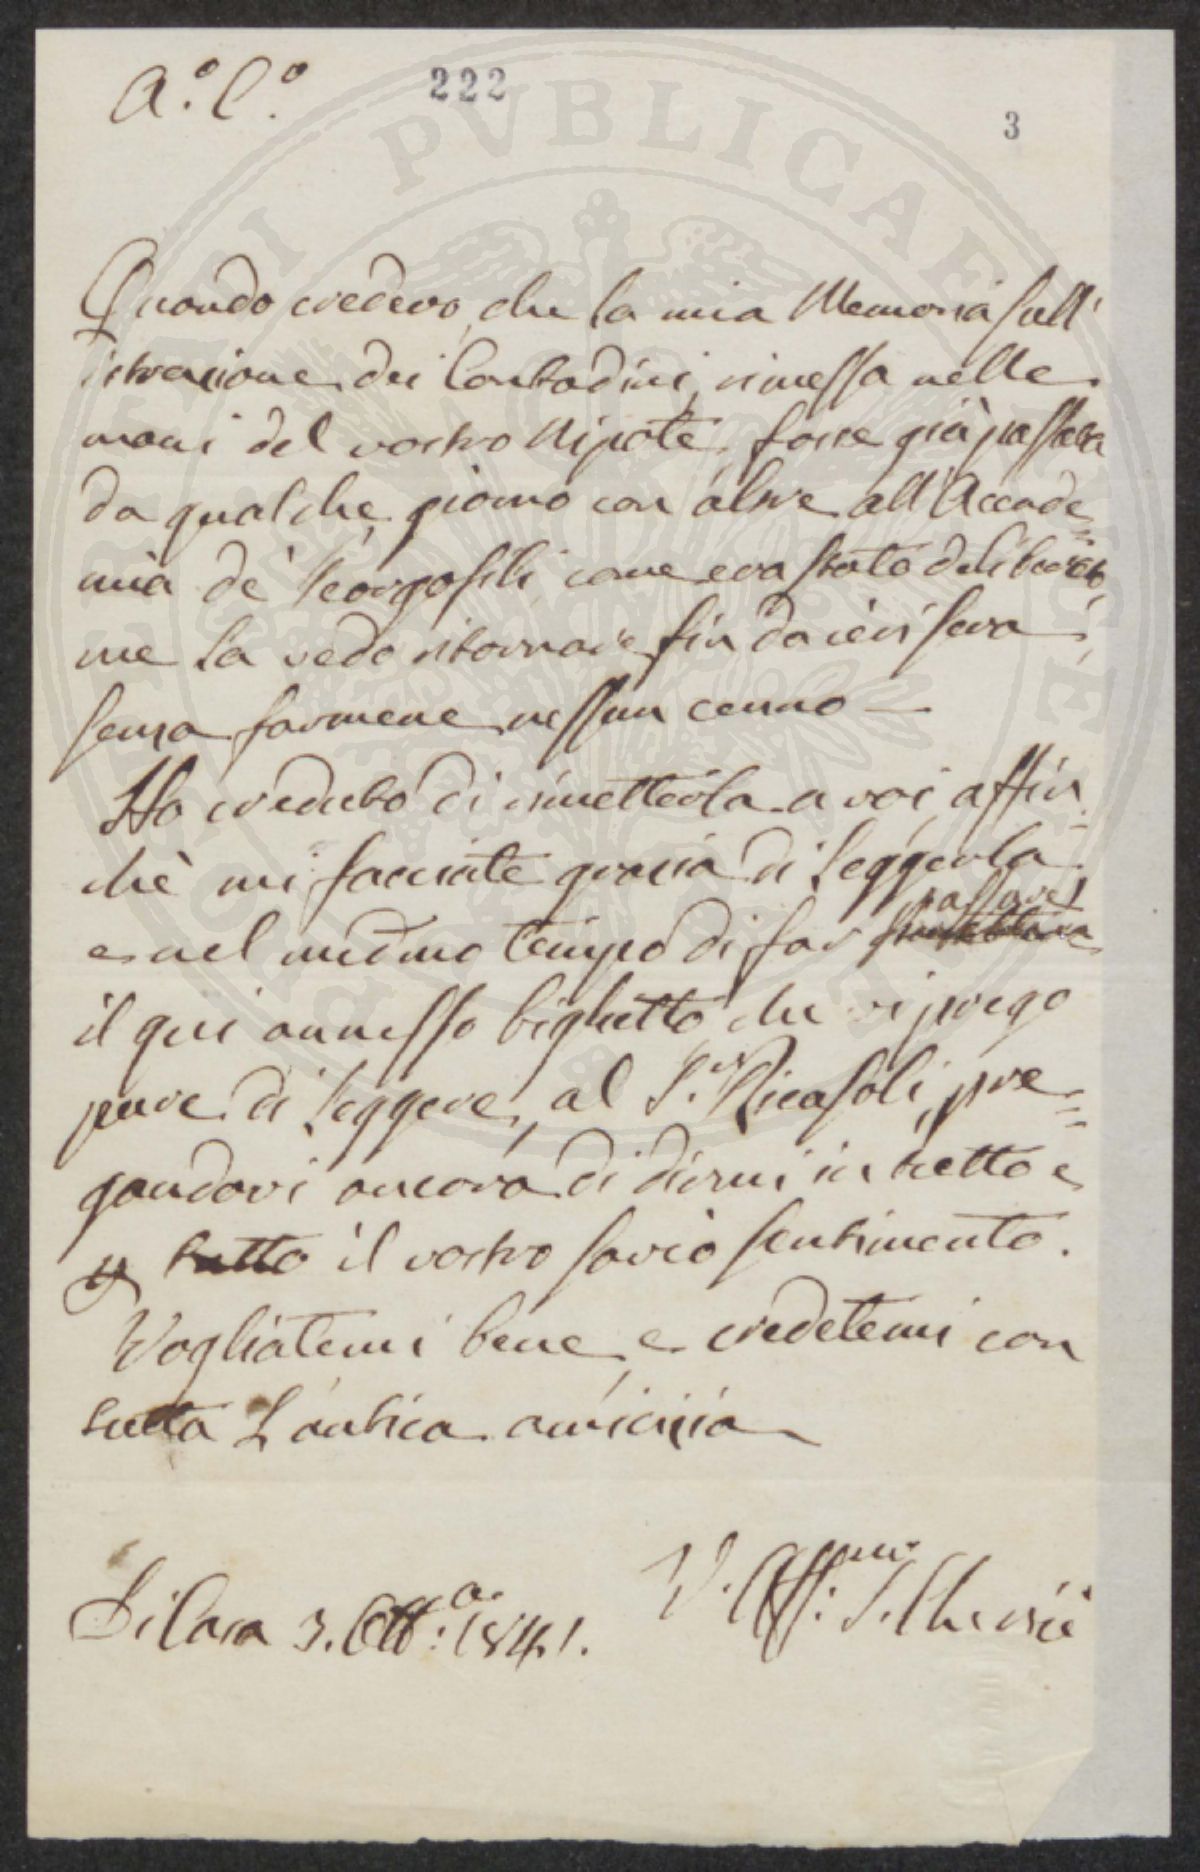 222
3
A.º C.º
Quando credevo, che la mia Memoria sull'
istruzione dei Contadini, rimessa nelle
mani del vostro Nipote, fosse già passata
da qualche giorno con altre all'Accade=
mia de' Georgofili, come era stato deliberato,
me la vedo ritornare fin da ieri sera,
senza farmene nessun cenno —
Ho creduto di rimetterla a voi, affin
chè mi facciate grazia di leggerla
e nel medmo tempo di far passare
il qui annesso biglietto, che vi prego
pure di leggere, al S.r Ricasoli, pre=
gandovi ancora di dirmi in tutto e
p tutto il vostro savio sentimento.
Vogliatemi bene, e credetemi con
tutta l'antica amicizia
Di Casa 3. Ott:e 1841.
V. Aff:mo
PVBLICAE